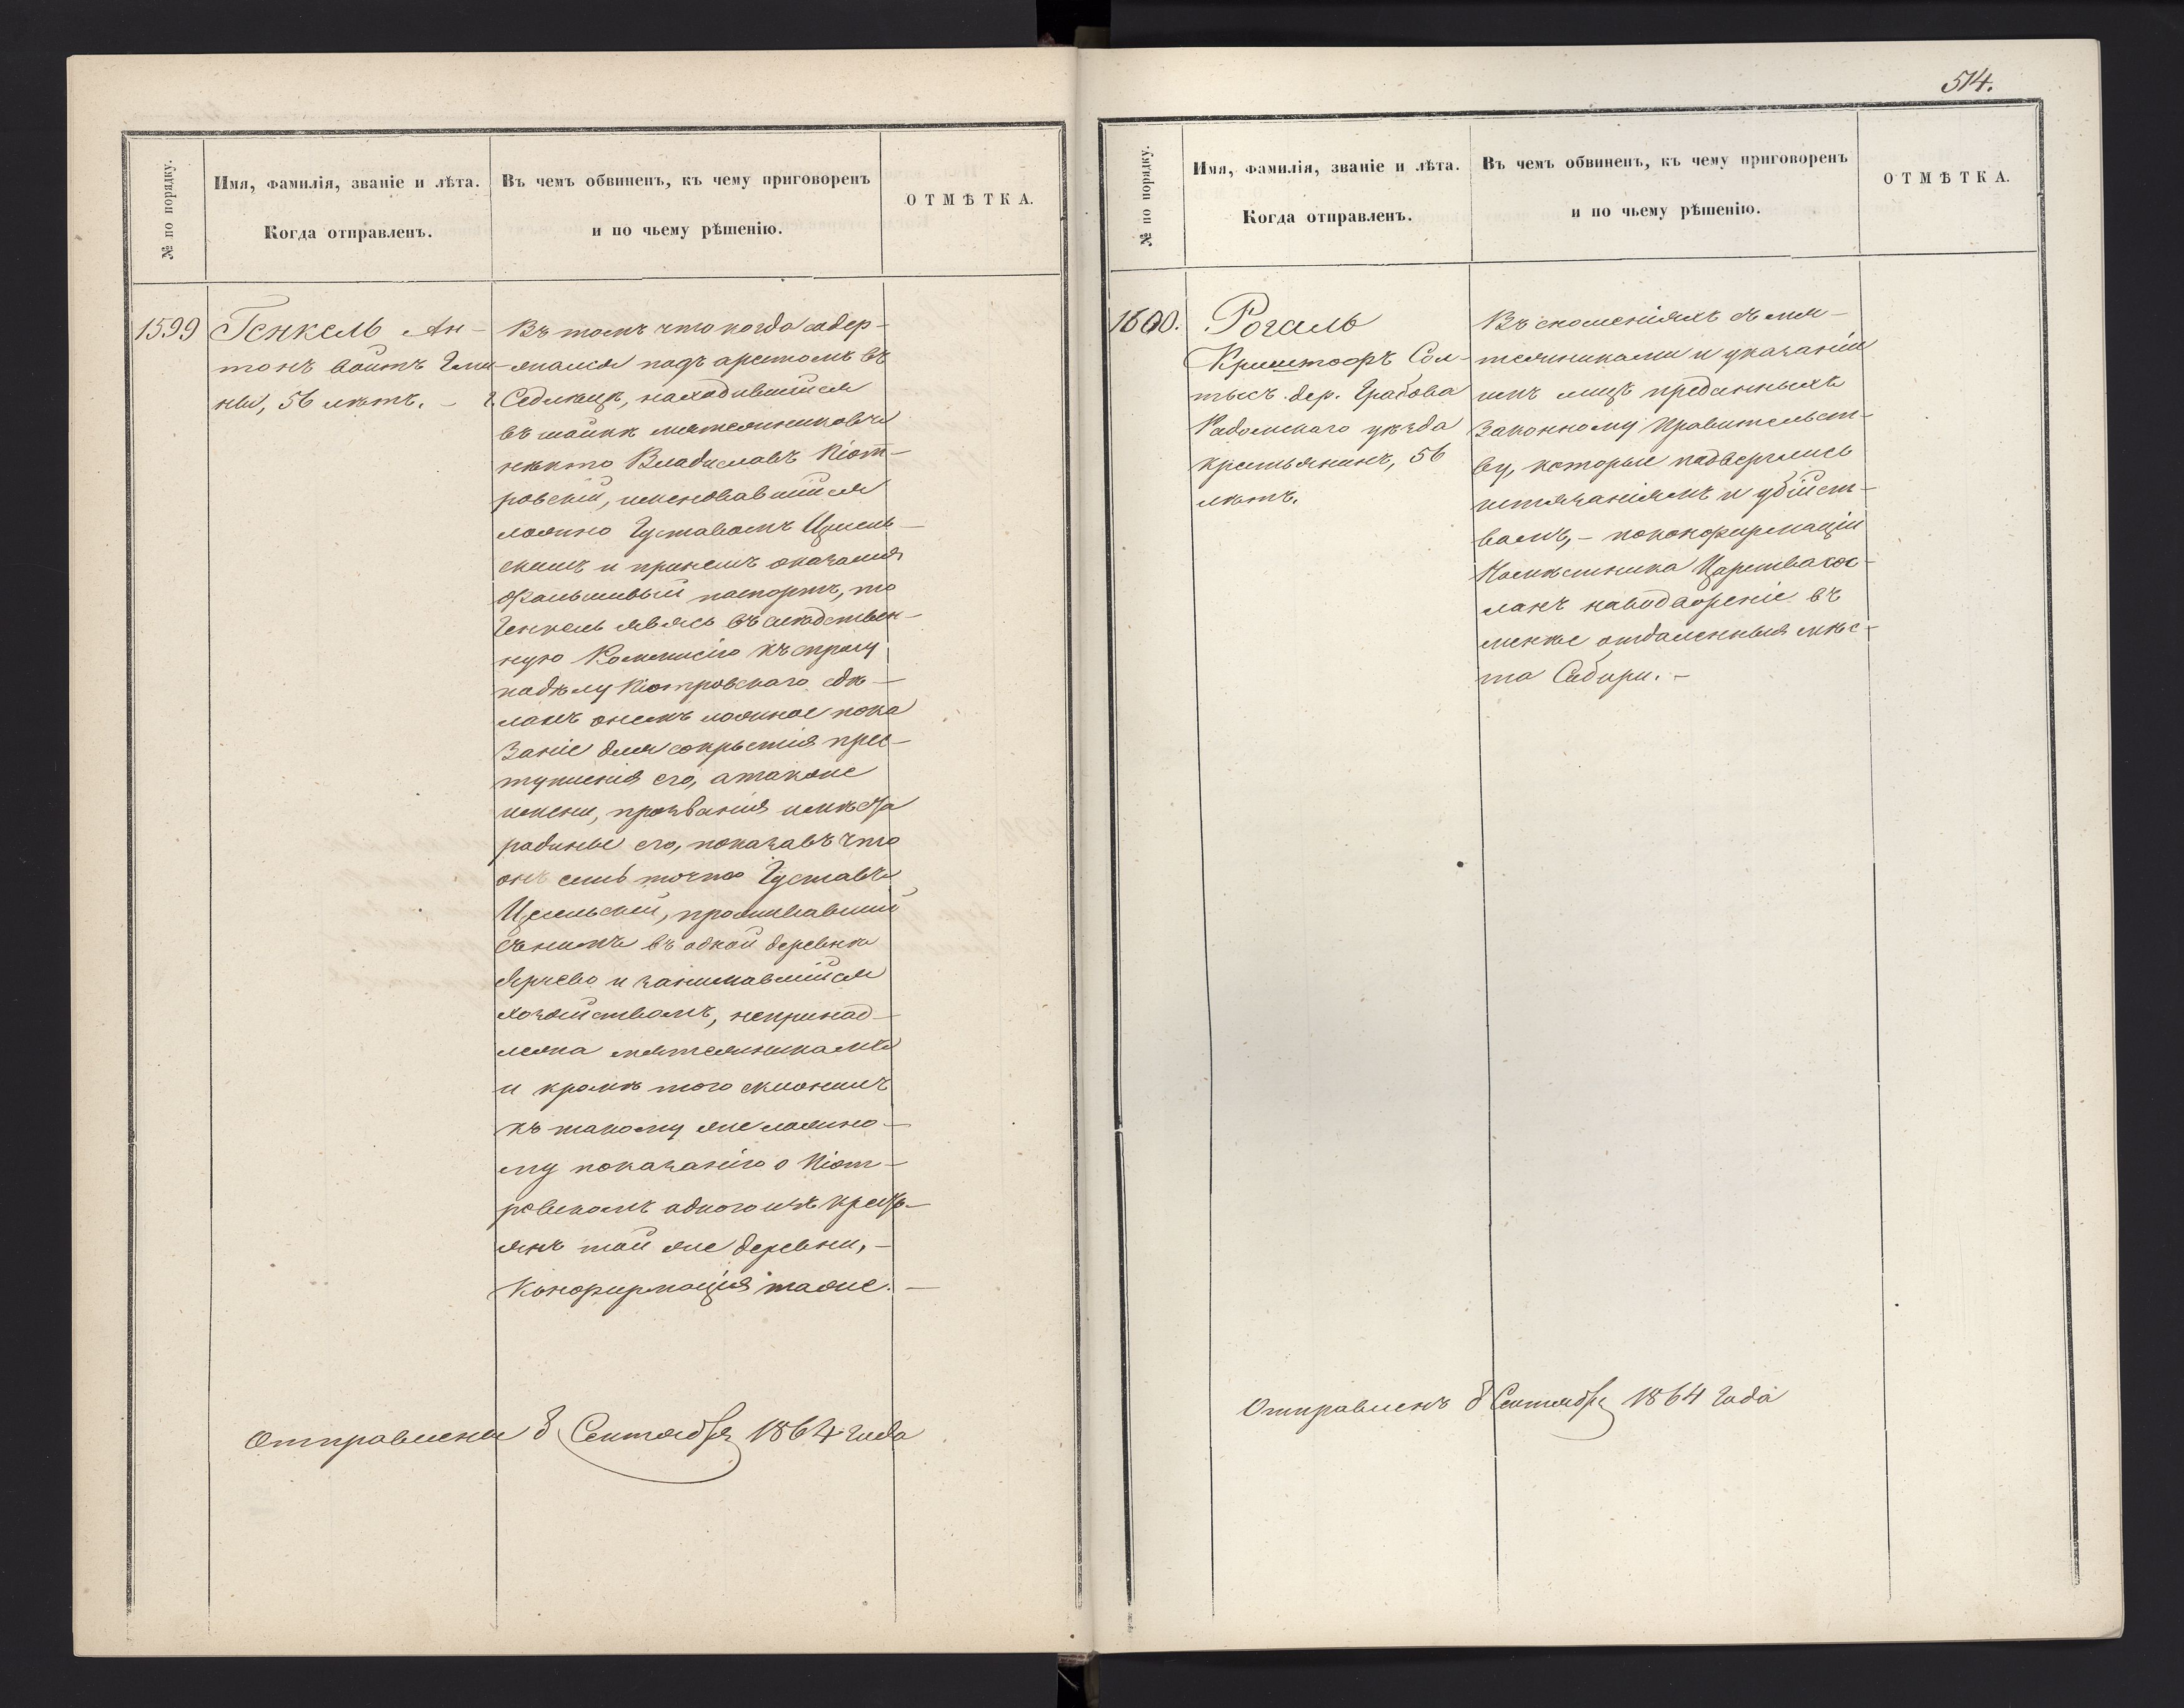 № по порядку.
Имя, фамилія, званіе и лѣта.
Когда отправленъ.
Въ чемъ обвиненъ, къ чему приговоренъ
и по чьему рѣшенію.
ОТМѢТКА.
1599
Генкель Ан-
тонъ войтъ Гми-
ны, 56 лѣтъ. –
Въ томъ что когда содер-
жался подъ арестомъ въ
г. Седлецѣ, находившійся
въ шайкѣ мятежниковъ
нѣкто Владиславъ Піот-
ровскій, именовавшійся
ложно Густавомъ Цѣсель-
скимъ и принемъ оказался
фальшивый паспортъ, то
Генкель явясь въ слѣдствен-
ную Коммисію къ спросу
подѣлу Піотровскаго сдѣ-
лалъ онемъ ложное пока
заніе для сокрытія прес-
тупленія его, атакже
имени, прозванія имѣста
родины его, показавъ что
онъ есть точно Густавъ
Цѣсельскій, проживавшій
снимъ въ одной деревнѣ
и занимавшійся
хозяйствомъ, непринад-
лежа мятежникамъ
и кромѣ того склонилъ
къ такому же ложно-
му показанію о Піот-
ровскомъ одного изъ кресть-
янъ той же деревни, –
Конфирмація таже. –
Отправленъ 8 Сентября 1864 года
514.
№ по порядку.
Имя, фамилія, званіе и лѣта.
Когда отправленъ.
Въ чемъ обвиненъ, къ чему приговоренъ
и по чьему рѣшенію.
ОТМѢТКА.
1600.
Рогаль
Криштофъ Сол-
тысъ дер. Грабова
Радомскаго уѣзда
крестьянинъ, 56
лѣтъ.
Въ сношеніяхъ съ мя-
тежниками и указаніи
имъ лицъ преданныхъ
законному Правительст-
ву, которые подверглись
истязаніямъ и убійст-
вамъ, – поконфирмаціи
Намѣстника Царства сос-
ланъ наводвореніе въ
менѣе отдаленныя мѣс-
та Сибири. –
Отправленъ 8 Сентября 1864 года